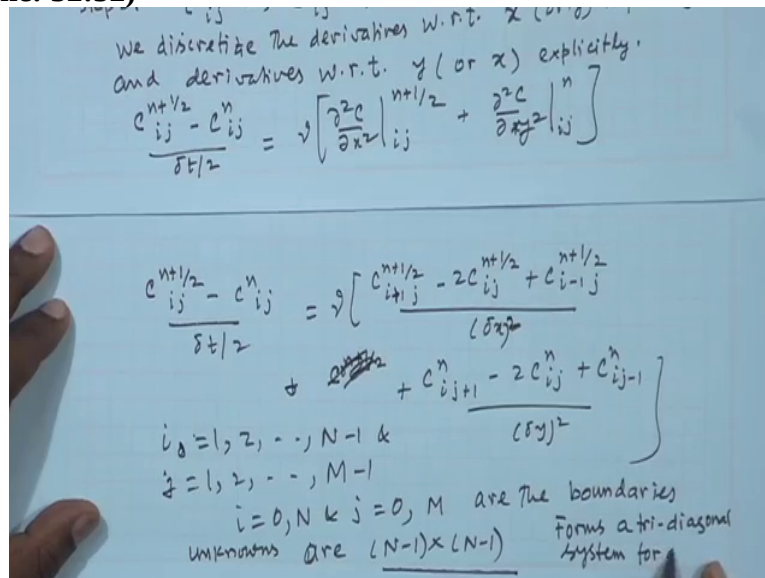 we discretize the derivatives w.r.t. x (or y)
and derivatives w.r.t. y (or x) explicitly.
(C^{n+1/2}_{ij} - C^n_{ij}) / (δt/2) = ν [ ∂²C/∂x² |^{n+1/2}_{ij} + ∂²C/∂y² |^n_{ij} ]
(C^{n+1/2}_{ij} - C^n_{ij}) / (δt/2) = ν [ (C^{n+1/2}_{i+1j} - 2C^{n+1/2}_{ij} + C^{n+1/2}_{i-1j}) / (δx)²
+ + (C^n_{ij+1} - 2C^n_{ij} + C^n_{ij-1}) / (δy)² ]
i = 1, 2, - - , N-1 &
j = 1, 2, - - , M-1
i = 0, N & j = 0, M are the boundaries
unknowns are (N-1)×(N-1) Forms a tri-diagonal
system for